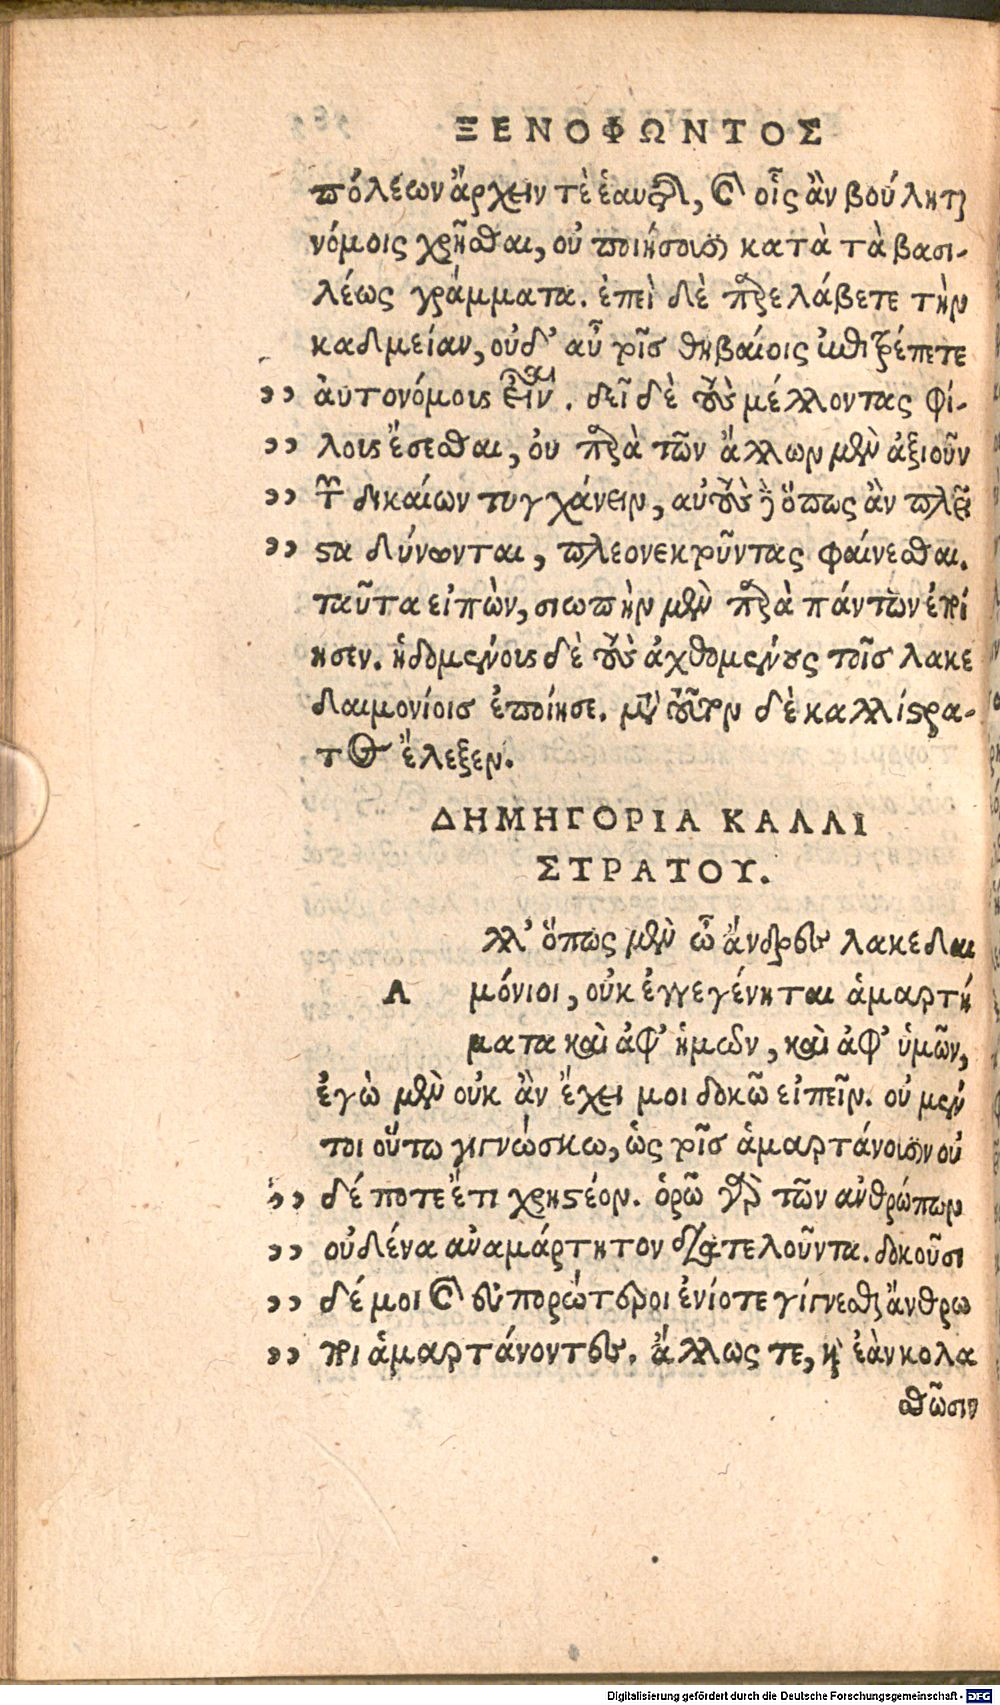 ΞΕΝΟΦΩΝΤΟΣ
πόλεων ἄρχειν τὲ ἑαυτῶν, καὶ οἷς ἂν βούληται
νόμοις χρῆσθαι, οὐ ποιήσουσι κατὰ τὰ βασι-
λέως γράμματα. ἐπεὶ δὲ παρελάβετε τὴν
καδμείαν, οὐδ' αὖ τοῖς θηβαίοις ἐπετρέπετε
„ αὐτονόμοις εἶναι. δεῖ δὲ τοὺς μέλλοντας φί-
„ λοις ἔσεσθαι, οὐ παρὰ τῶν ἄλλων μὲν ἀξιοῦν
„ τῶν δικαίων τυγχάνειν, αὐτοὺς δὲ ὅπως ἂν πλεῖ
„ στα δύνωνται, πλεονεκτοῦντας φαίνεσθαι.
ταῦτα εἰπὼν, σιωπὴν μὲν παρὰ πάντων ἐποί
ησεν. ἡδομένοις δὲ τοὺς ἀχθομένους τοῖς λακε
δαιμονίοις ἐποίησε. μετὰ τοῦτον δὲ καλλίστρα-
τος ἔλεξεν.
ΔΗΜΗΓΟΡΙΑ ΚΑΛΛΙ
ΣΤΡΑΤΟΥ.
λλ' ὅπως μὲν ὦ ἄνδρες λακεδαι
Α μόνιοι, οὐκ ἐγγεγένηται ἁμαρτή
ματα καὶ ἀφ' ἡμῶν, καὶ ἀφ' ὑμῶν,
ἐγὼ μὲν οὐκ ἂν ἔχειν μοι δοκῶ εἰπεῖν. οὐ μέν
τοι οὕτω γιγνώσκω, ὡς τοῖς ἁμαρτάνουσιν οὐ
„ δέποτε ἔτι χρηστέον. ὁρῶ γὰρ τῶν ἀνθρώπων
„ οὐδένα ἀναμάρτητον διατελοῦντα. δοκοῦσι
„ δέ μοι καὶ εὐπορώτεροι ἐνίοτε γίγνεσθαι ἄνθρω
„ ποι ἁμαρτάνοντες. ἄλλως τε, καὶ ἐὰν κολα
σθῶσιν
Digitalisierung gefördert durch die Deutsche Forschungsgemeinschaft - DFG